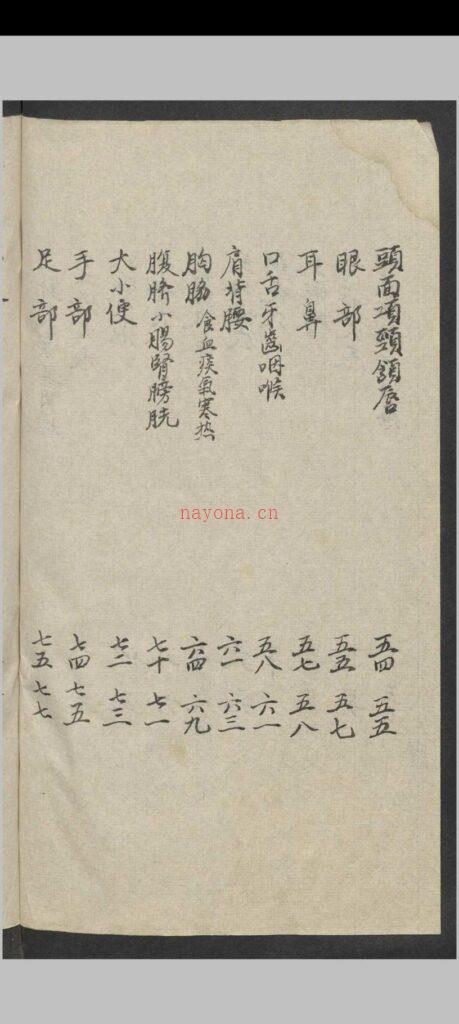 頭面項頸頷唇 五四 五五
眼部 五五 五七
耳鼻 五七 五八
口舌牙齒咽喉 五八 六一
肩背腰 六一 六三
胸脇 食血痰氣寒热 六四 六九
腹臍小腸腎膀胱 七十 七一
大小便 七二 七三
手部 七四 七五
足部 七五 七七
nayona.cn